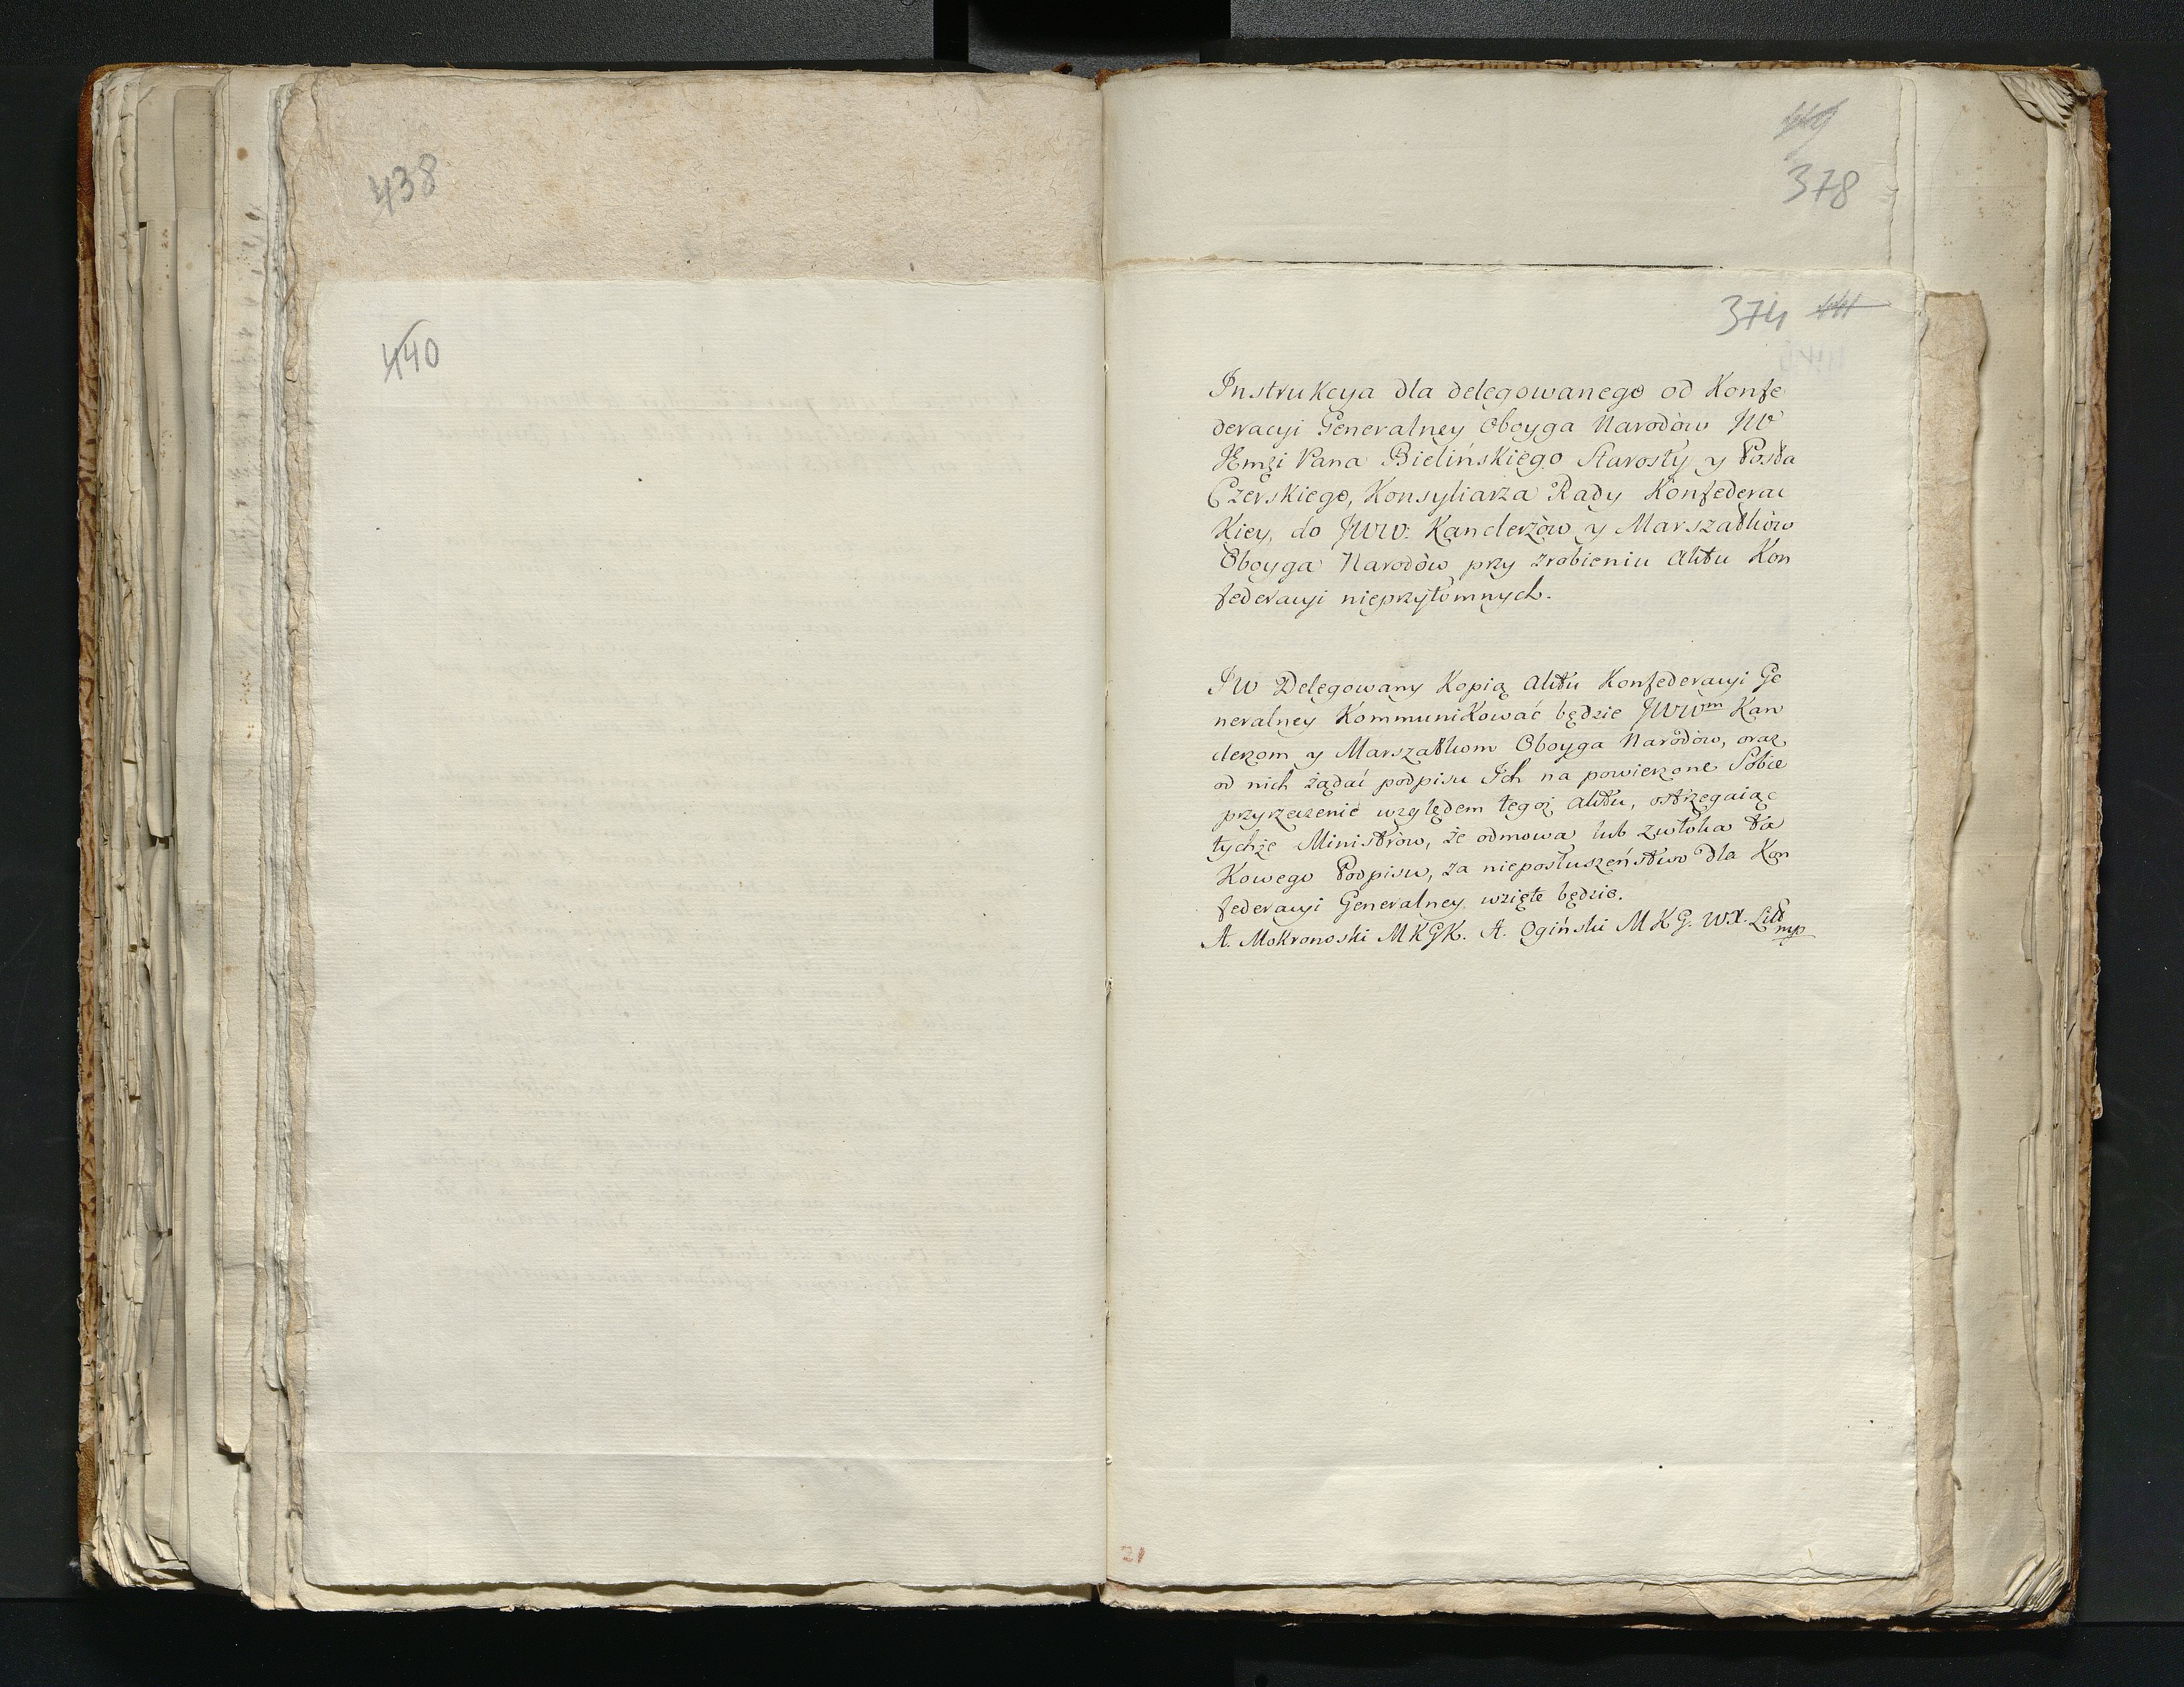 438
440
378
374
Instrukcya dla delegowanego od Konfe
deracyi Generalney Oboyga Narodów JW
Jmci Pana Bielińskiego Starosty y Posła
Czerskiego, Konsyliarza Rady Konfederac
kiey, do JWW. Kanclerzów y Marszałków
Oboyga Narodów przy zrobieniu Aktu Kon
federacyi nieprzytomnych.
JW Delegowany Kopią Aktu Konfederacyi Ge
neralney Kommunikować będzie JWWm Kan
clerzom y Marszałkom Oboyga Narodów, oraz
od nich żądać podpisu Ich na powierzone Sobie
przyrzeczenie względem tegoż Aktu, ostrzegaiąc
tychże Ministrów, że odmowa lub zwłoka ta
kowego Podpisu, za nieposłuszeństwo dla Kon
federacyi Generalney wzięte będzie.
A. Mokronoski MKGK. A. Ogiński MKG. WX. Litt
mp
21